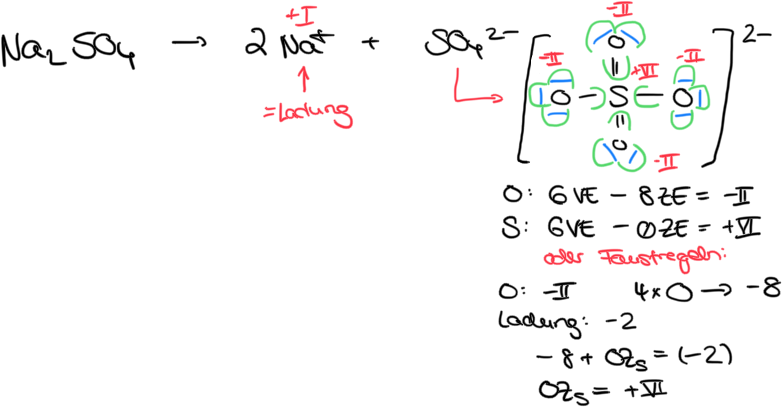 +I
-II
Na₂SO₄ → 2 Na⁺ + SO₄²⁻
2-
-II
+VI
-II
=Ladung
O - S - O
O
O
-II
O: 6VE - 8ZE = -II
S: 6VE - 0ZE = +VI
oder Faustregeln:
O: -II 4×O → -8
Ladung: -2
-8 + OZₛ = (-2)
OZₛ = +VI